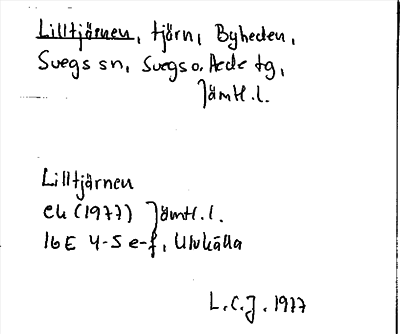 Lilltjärnen, tjärn, Byheden,
Svegs sn, Svegs o. Hede tg,
Jämtl.l.
Lilltjärnen
ek (1977) Jämtl.l.
16E 4-5 e-f, Ulvkälla
L.C.J. 1977